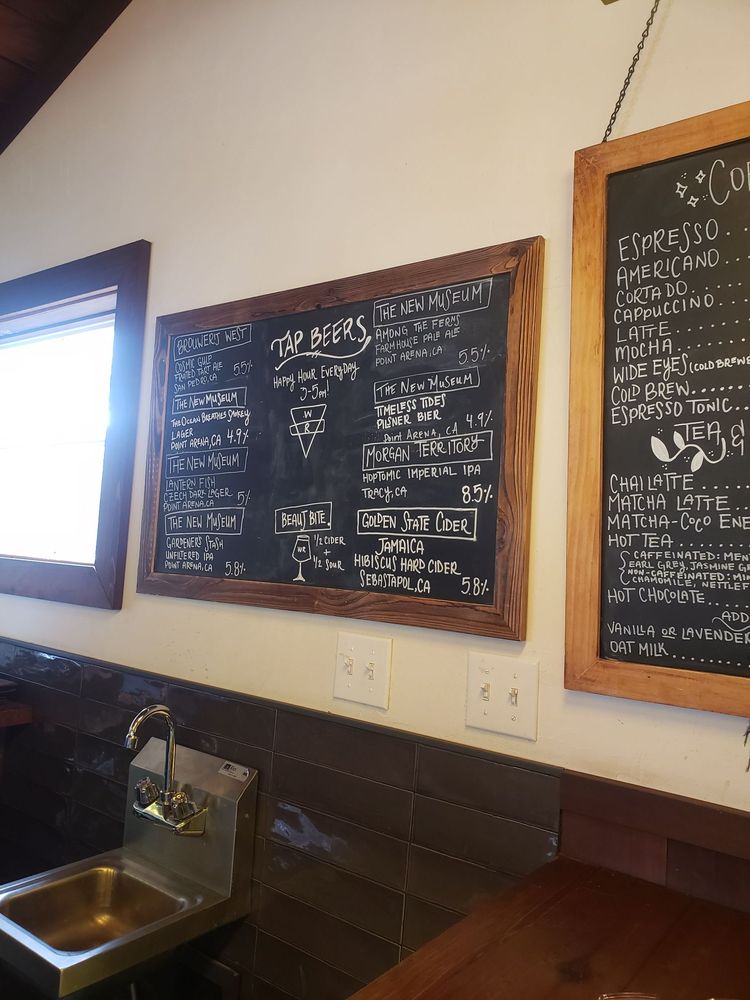 BROUWERIJ WEST
COSMIC GULP
FRUITED TART ALE
SAN PEDRO, CA 5.5%
THE NEW MUSEUM
THE OCEAN BREATHES SMOKEY
LAGER
POINT ARENA, CA 4.9%
THE NEW MUSEUM
LANTERN FISH
CZECH DARK LAGER 5%
POINT ARENA, CA
THE NEW MUSEUM
GARDENERS STASH
UNFILTERED IPA
POINT ARENA, CA 5.8%
TAP BEERS
HAPPY HOUR EVERYDAY
3-5pm!
W
R
BEAUT BITE.
WR
1/2 CIDER
+
1/2 SOUR
THE NEW MUSEUM
AMONG THE FERNS
FARMHOUSE PALE ALE
POINT ARENA, CA 5.5%
THE NEW MUSEUM
TIMELESS TIDES
PILSNER BIER
POINT ARENA, CA 4.9%
MORGAN TERRITORY
HOPTOMIC IMPERIAL IPA
TRACY, CA 8.5%
GOLDEN STATE CIDER
JAMAICA
HIBISCUS HARD CIDER
SEBASTAPOL, CA 5.8%
ESPRESSO...
AMERICANO...
CORTADO...
CAPPUCCINO...
LATTE...
MOCHA...
WIDE EYES (COLD BREW
COLD BREW...
ESPRESSO TONIC...
TEA &
CHAI LATTE...
MATCHA LATTE...
MATCHA-COCO ENE
HOT TEA...
CAFFEINATED: MEN
EARL GREY, JASMINE GR
NON-CAFFEINATED: MI
CHAMOMILE, NETTLE F
HOT CHOCOLATE...
ADD
VANILLA OR LAVENDER
OAT MILK...